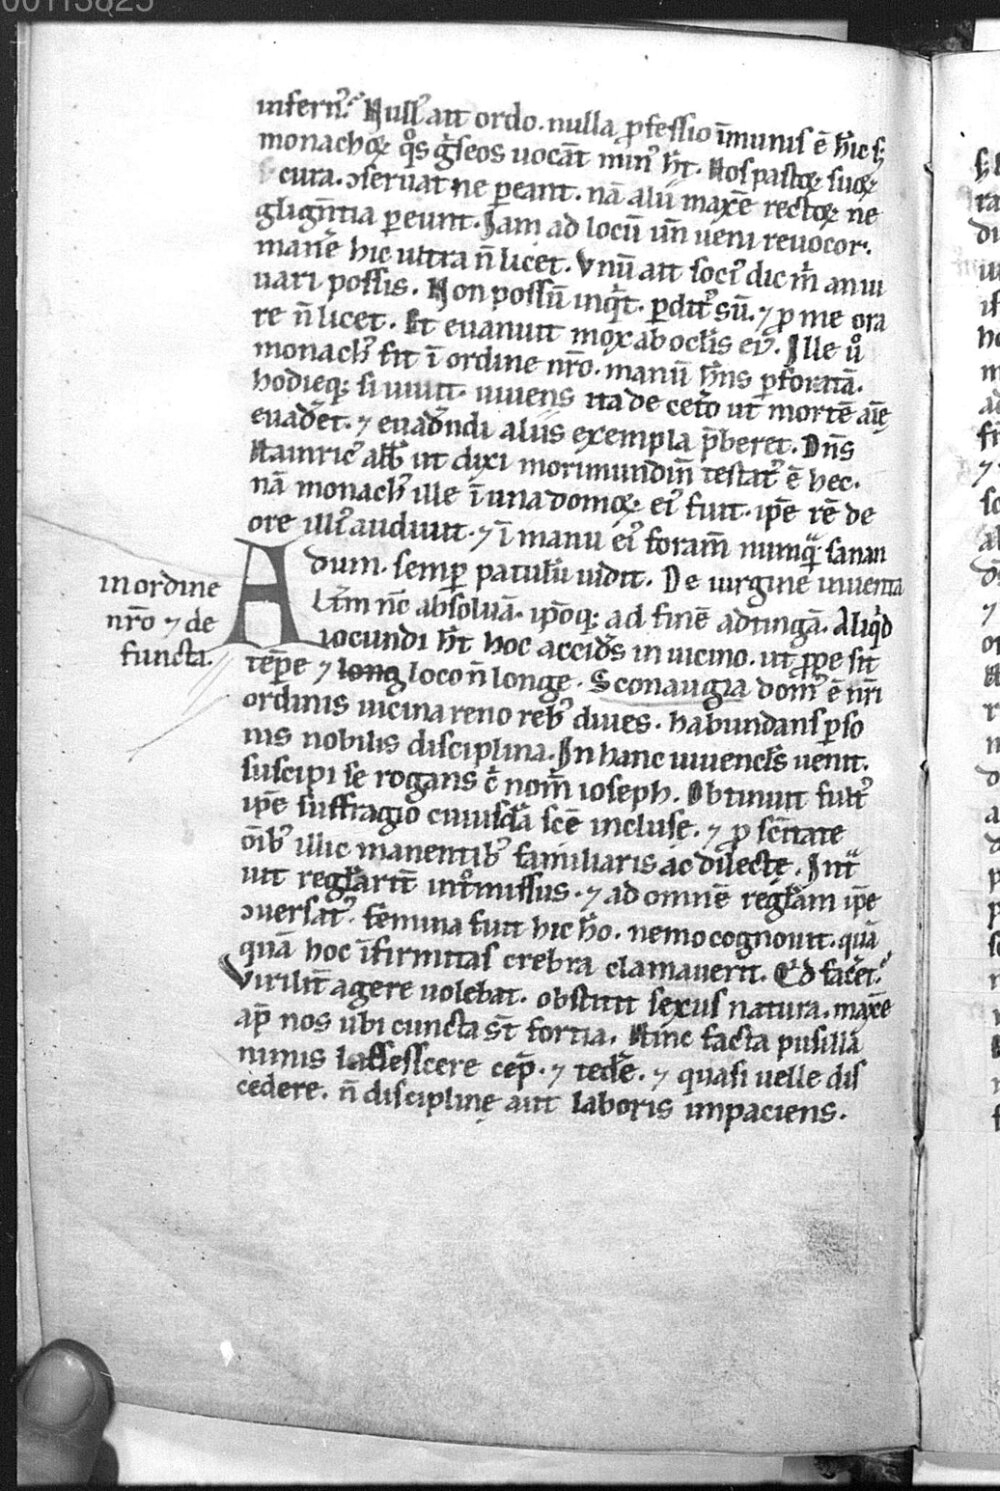 00113825
inferñ. Null' aut̄ ordo. nulla p̱fessio īmunis ē h̓ic s;
monachoꝝ q̊s g̓seos uocāt min' h̓t. Nos pastoꝝ suoꝝ
cura. ↄseruat ne ꝑeant. nā alii maxē rectoꝝ ne
gligñtia ꝑeunt. Iam ad locū ūn ueni reuocor.
manē hic ultra ñ licet. Vnū aīt soci' dic m̓ an iu
uari possis. Non possū inq̓t. ꝑdit' sū. ⁊ ꝓ me ora
re ñ licet. Et euanuit mox ab oclis ei'. Ille ů
monach' fit ī ordine nr̄o. manū h̓ns ꝑforatā.
hodieq; si uiuit. uiuens ita de cet̓o ut mortē aīę
euadet. ⁊ euad̓ndi aliis exempla p̄beret. Dñs
Hainric' abb' ut dixi morimundiñ testat' ē hec.
nā monach' ille ī una domoꝝ ei' fuit. ip̄e rē de
ore illi' audiuit. ⁊ ī manu ei' foram̄ numq̃ sanan
dum. semꝑ patulū uidit. De uirgine inuenta
in ordine
nr̄o ⁊ de
functa.
Altm̄ nc̄ absoluā. ip̄oq; ad finē adtingā. Aliq̓d
iocundi h̓t hoc accid̓s in uicino. ut ꝓpe sit
tēp̱e ⁊ long loco ñ longe. Sconaugia dom' ē nr̄i
ordinis uicina reno reb' diues. habundans ꝑso
nis nobilis disciplina. In hanc iuuencl's uenit.
suscipi se rogans c̄ nom̄ ioseph. Obtinuit fult'
ip̄e suffragio cuiusdā sc̄e incluse. ⁊ ꝓ sc̄itate
oīb' illic manentib' familiaris ac dilectę. Int̃
uit regl̓arit̄ int̓missus. ⁊ ad omnē regl̓am ip̄e
ↄuersat'. femina fuit hic h̊o. nemo cognouit. quā
quā hoc īfirmitas crebra clamauerit. Q̓d facet.
Virilit̄ agere uolebat. obstitit sexus natura. maxē
ap̄ nos ubi cuncta s̄t fortia. Hinc facta pusilla
nimis lassescere cep̱. ⁊ tedē. ⁊ quasi uelle dis
cedere. ñ disciplinę aut laboris impaciens.